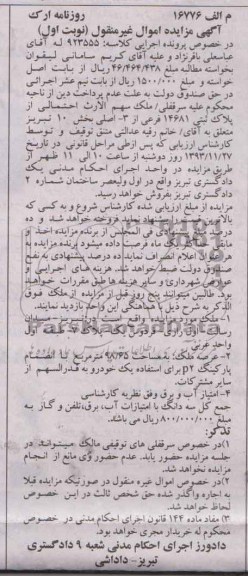 م الف ۱۶۷۷۶ روزنامه ارک
آگهی مزایده اموال غیرمنقول (نوبت اول)
در خصوص پرونده اجرایی کلاسه: ۹۲۳۵۵۵ له آقای
عباسعلی باقرنژاد و علیه آقای کریم سامانی لیقوان
بخواسته مطالبه مبلغ ۴۶/۴۶۴/۴۳۸ ریال از بابت اصل
خواسته و مبلغ ۱۵۰۰/۰۰۰ ریال از بابت نیم عشر اجرائی
در حق صندوق دولت به علت عدم پرداخت دین از ناحیه
محکوم علیه سرقفلی/ ملک سهم الارث احتمالی از
پلاک ثبتی ۱۴۶۸۱ فرعی از ۳- اصلی بخش ۱۰ تبریز
متعلق به آقای/ خانم رقیه عدالتی متنق توقیف و توسط
کارشناس ارزیابی که پس ازطی مراحل قانونی در تاریخ
۱۳۹۳/۱۱/۲۷ روز دوشنبه از ساعت ۱۰ الی ۱۱ ظهر از
طریق مزایده در واحد اجرای احکام مدنی یک
دادگستری تبریز واقع در اول ولیعصر ساختمان شماره ۲
دادگستری تبریز بفروش خواهد رسید.
مزایده از مبلغ ارزیابی شده کارشناس شروع و به کسی که
بالاترین قیمت را پیشنهاد نماید فروخته خواهد شد و ده
درصد پیشنهادی فی المجلس از برنده مزایده اخذ و
یک ماه فرصت داده میشود برنده مزایده به
هر دلیل اعلام انصراف نماید ده درصد پیشنهادی به نفع
صندوق دولت ضبط خواهد شد. هزینه های اجرایی و
عوارض شهرداری و سایر هزینه ها طبق مقررات خواهد
بود. طالبین میتوانند پنج روز قبل از مزایده از ملک فوق
الذکر به شرح ذیل با هماهنگی این واحد بازدید نمایند.
۱- ملک مورد مزایده واقع است در تبریز
واحد غربی
۲- عرصه ملک: به مساحت ۹۸/۶۵ مترمربع با انضمام
پارکینگ p۲ برای استفاده یک خودرو به قدرالسهم از
سایر مشترکات.
۴- امتیاز آب و برق وفق نظریه کارشناسی
جمع کل سه دانگ با امتیازات آب، برق، تلفن و گاز به
مبلغ ۸۰۰/۰۰۰/۰۰۰ ریال می باشد.
تذکر:
۱)در خصوص سرقفلی های توقیفی مالک میتوانند در
جلسه مزایده حضور یابد. عدم حضور وی مانع از انجام
مزایده نخواهد شد.
۲)در خصوص اموال غیره منقول در صورتیکه مزایده قبلا
به اجاره واگذر شده حق شخص ثالث در این خصوص
لحاظ خواهد شد.
۳) مفاد ماده ۱۴۴ قانون اجرای احکام مدنی در خصوص
محکوم له خریدار مجری خواهد بود.
دادورز اجرای احکام مدنی شعبه ۹ دادگستری
تبریز- داداشی